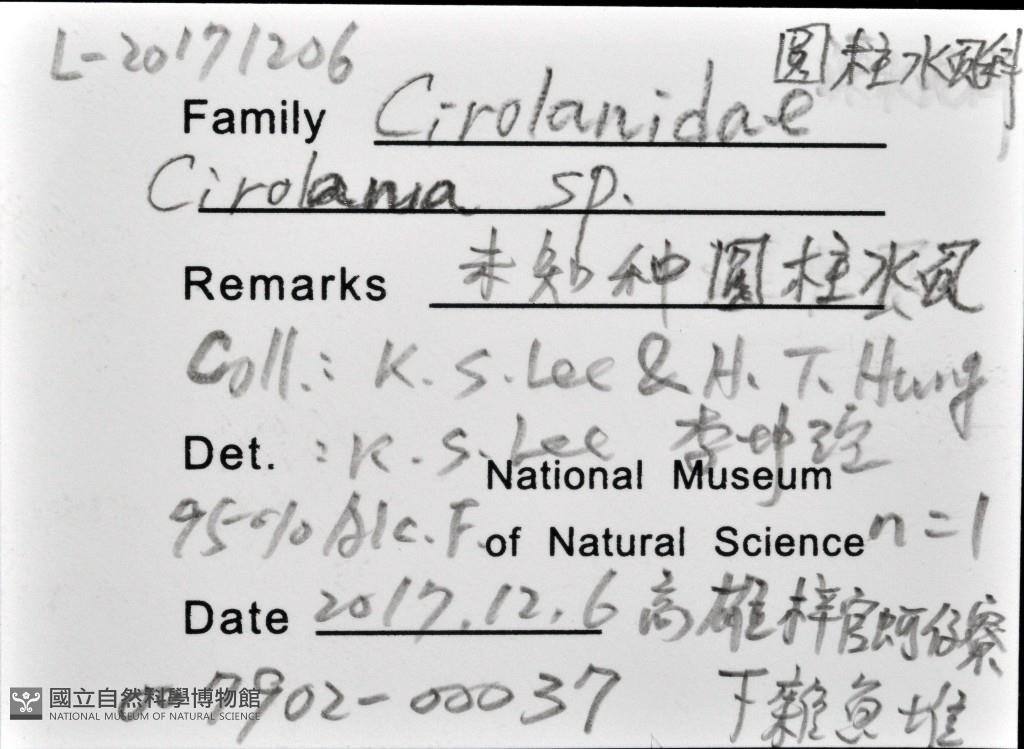 L-20171206 圓柱水虱科
Family Cirolanidae
Cirolana sp.
Remarks 未知种圓柱水虱
Coll.: K. S. Lee & H. T. Hung
Det. : K. S. Lee 李坤瑄
National Museum
95% Alc. F. of Natural Science n=1
Date 2017.12.6 高雄梓官蚵仔寮
7902-00037 下雜魚堆
國立自然科學博物館
NATIONAL MUSEUM OF NATURAL SCIENCE